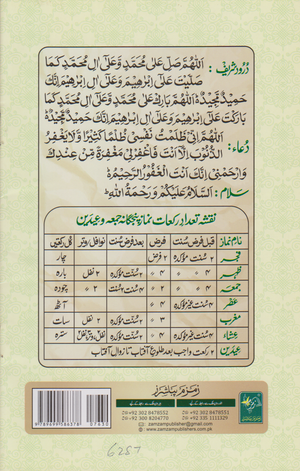 درود شریف: اَللّٰهُمَّ صَلِّ عَلٰى مُحَمَّدٍ وَّعَلٰى اٰلِ مُحَمَّدٍ كَمَا
صَلَّيْتَ عَلٰى اِبْرٰهِيْمَ وَعَلٰى اٰلِ اِبْرٰهِيْمَ اِنَّكَ
حَمِيْدٌ مَّجِيْدٌ اَللّٰهُمَّ بَارِكْ عَلٰى مُحَمَّدٍ وَّعَلٰى اٰلِ مُحَمَّدٍ كَمَا
بَارَكْتَ عَلٰى اِبْرٰهِيْمَ وَعَلٰى اٰلِ اِبْرٰهِيْمَ اِنَّكَ حَمِيْدٌ مَّجِيْدٌ
دعاء: اَللّٰهُمَّ اِنِّيْ ظَلَمْتُ نَفْسِيْ ظُلْمًا كَثِيْرًا وَّلَا يَغْفِرُ
الذُّنُوْبَ اِلَّا اَنْتَ فَاغْفِرْلِيْ مَغْفِرَةً مِّنْ عِنْدِكَ
وَارْحَمْنِيْ اِنَّكَ اَنْتَ الْغَفُوْرُ الرَّحِيْمُ
سلام: اَلسَّلَامُ عَلَيْكُمْ وَرَحْمَةُ اللهِ
نقشہ تعداد رکعات نماز پنجگانہ جمعہ و عیدین
نام نماز قبل فرض سنت فرض بعد فرض سنت نوافل/وتر کل رکعتیں
فجر ۲ سنت مؤکدہ ۲ چار
ظہر ۴ سنت مؤکدہ ۴ ۲ سنت مؤکدہ ۲ نفل بارہ
جمعہ ۴ ۲ ۲ چودہ
عصر ۴ سنت غیر مؤکدہ ۴ آٹھ
مغرب ۳ ۲ سنت مؤکدہ ۲ نفل سات
عشاء ۴ سنت غیر مؤکدہ ۴ ۲ سنت مؤکدہ سترہ
عیدین ۲ رکعت واجب بعد طلوع آفتاب تا زوال آفتاب
زمزم پبلشرز
+92 302 8478551
+92 302 8478552
+92 300 8204770
+92 335 1111329
zamzampublisher@gmail.com
www.zamzampublishers.com.pk
9789699586378
07630
6287